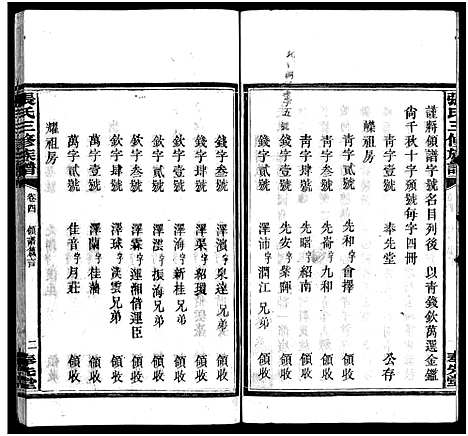 張氏三修族譜
謹將領譜字號名目列後 以青錢欽萬選金鑑
尚千秋十字頒號每字四冊
青字壹號 奉先堂 公存
青字貳號 先和字會擇 領收
青字叁號 先喬字九和 領收
青字肆號 先曙字紹南 領收
錢字壹號 先安字葉暉 領收
錢字貳號 澤沛字潤江兄弟 領收
奉先堂
張氏三修族譜
卷四 領譜篇言
二 奉先堂
錢字叁號 澤濱字泉達 領收
錢字肆號 澤渠字紹瓊 領收
欽字壹號 澤海字新桂 領收
欽字貳號 澤滋字振海兄弟 領收
欽字叁號 澤霖字運湘借運臣 領收
欽字肆號 澤球字漢雲兄弟 領收
萬字壹號 澤蘭字桂藩 領收
萬字貳號 佳音字月莊 領收
耀祖房